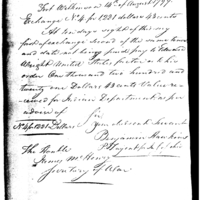 Fort Wilkinson 14th of August 1799
Exchange No. 4 for 1221 dollars 4 cents
At ten days sight of this my
first of exchange second of the same tenor
and date not being paid pay to Edward
Wright United States factor or to his
order One thousand two hundred and
twenty one Dollars 4 cents Value re-
ceived for Indian Department as per
advice of Sir
No. 4 for 1221 Dollars your obedt Servant
Benjamin Hawkins
The Honble
James McHenry
Secretary of War